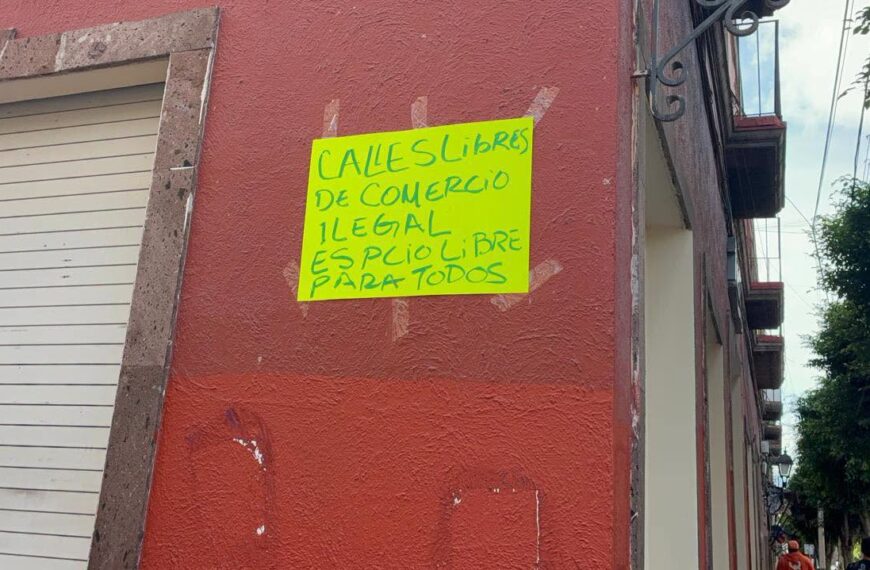 CALLES LIBRES
DE COMERCIO
ILEGAL
ESPCIO LIBRE
PARA TODOS